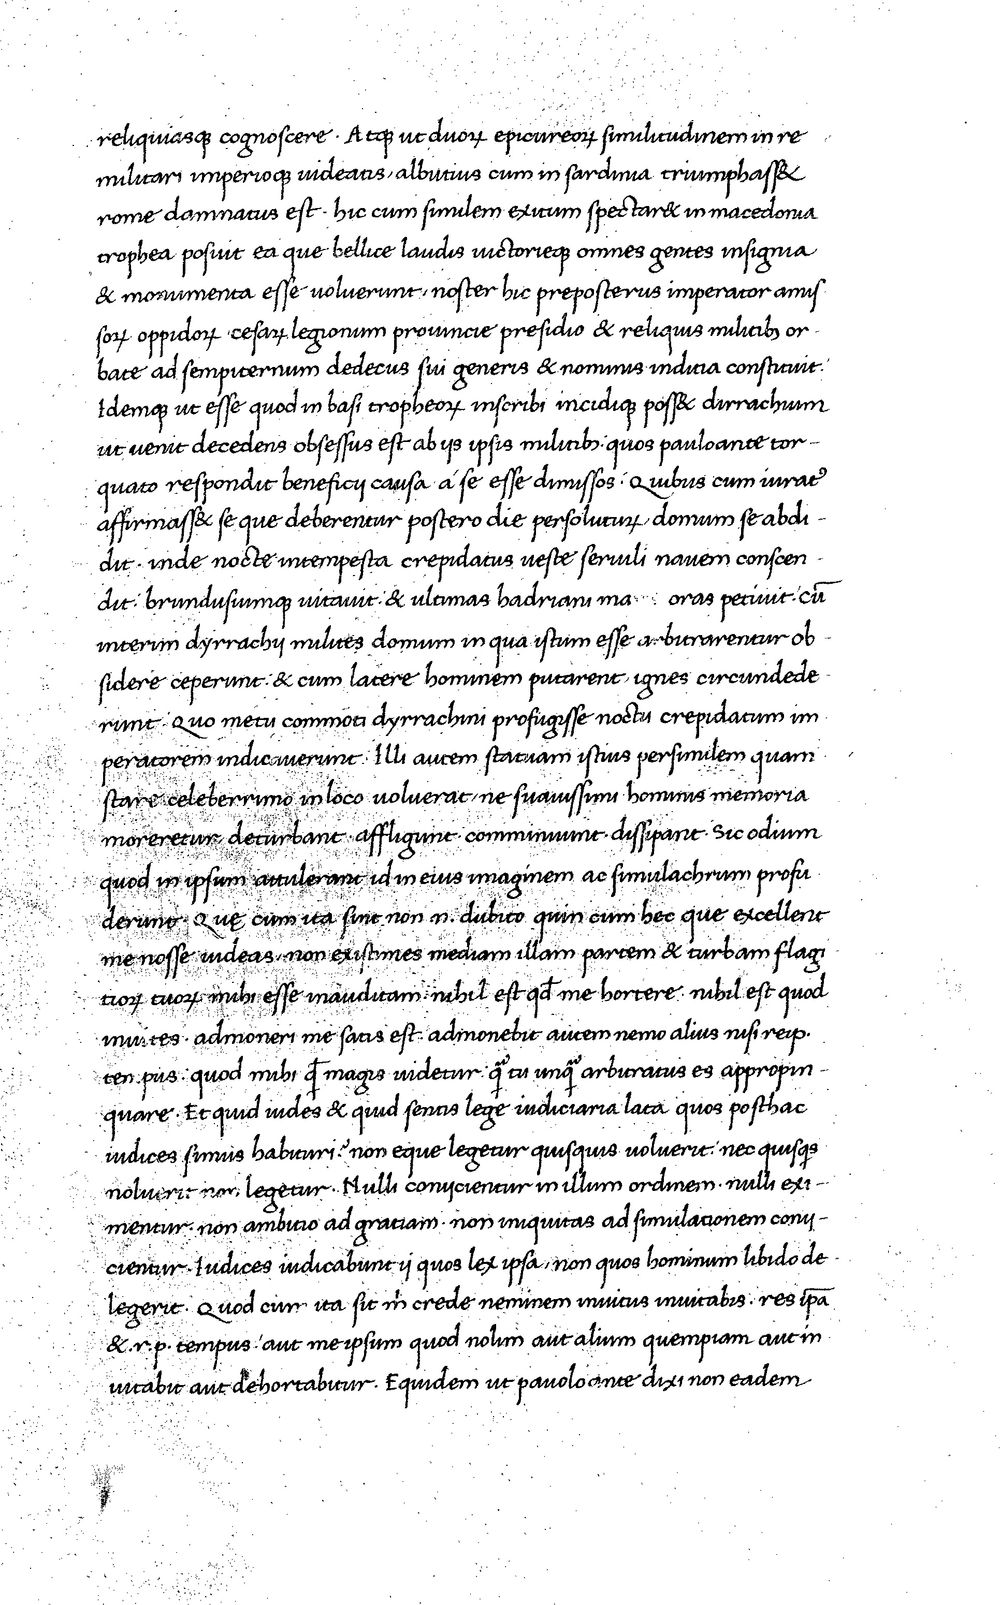 reliquiasqꝫ cognoscere · Atqꝫ ut duoꝝ epicureoꝝ similitudinem in re
militari imperioqꝫ uideatis, albutius cum in sardinia triumphass&
rome damnatus est · hic cum similem exitum spectar& in macedonia
trophea posuit ea que bellice laudis uictorieqꝫ omnes gentes insignia
& monumenta esse uoluerunt, noster hic preposterus imperator amis
soꝝ oppidoꝝ cesaꝝ legionum prouincie presidio & reliquis militibꝫ or-
bate ad sempiternum dedecus sui generis & nominis inditia constituit:
Idemqꝫ ut esse quod in basi tropheoꝝ inscribi incidiqꝫ poss& dirrachium
ut uenit decedens obsessus est ab ijs ipsis militibꝫ quos pauloante tor-
quato respondit beneficij causa á se esse dimissos · Quibus cum iurat᾽
affirmass& se que deberentur postero die persolutuꝝ, domum se abdi-
dit · inde nocte intempesta crepidatus ueste seruili nauem conscen
dit: brundusiumqꝫ uitauit: & ultimas hadriani ma oras petiuit: cū
interim dyrrachij milites domum in qua istum esse arbitrarentur ob-
sidere ceperunt: & cum latere hominem putarent, ignes circundede
runt · Quo metu commoti dyrrachini profugisse noctu crepidatum im
peratorem indicauerunt · Illi autem statuam istius persimilem quam
stare celeberrimo in loco uoluerat, ne suauissimi hominis memoria
moreretur, deturbant · affligunt · comminuunt · dissipant · Sic odium
quod in ipsum attulerant id in eius imaginem ac simulachrum profu
derunt · Quę cum ita sint non n. dubito quin cum hec que excellent
me nosse uideas, non existimes mediam illam partem & turbam flagi
tioꝝ tuoꝝ mihi esse inauditam: nihil est qd̄ me hortere · nihil est quod
inuites · admoneri me satis est: admonebit autem nemo alius nisi reip·
tem pus: quod mihi q̄ magis uidetur q̄ tu unq̄ arbitratus es appropin-
quare · Et quid uides & quid sentis lege iudiciaria lata quos posthac
iudices simus habituri? non eque legetur quisquis uoluerit: nec quisq̄s
noluerit non legetur · Nulli conijcientur in illum ordinem · nulli exi-
mentur · non ambitio ad gratiam · non iniquitas ad simulationem conij-
cientur · Iudices iudicabunt ij quos lex ipsa, non quos hominum libido de
legerit · Quod cum ita sit m̄ crede neminem inuitus inuitabis · res ip̄a
& .r.p. tempus: aut me ipsum quod nolim aut alium quempiam aut in
uitabit aut dehortabitur · Equidem ut pauoloante dixi non eadem